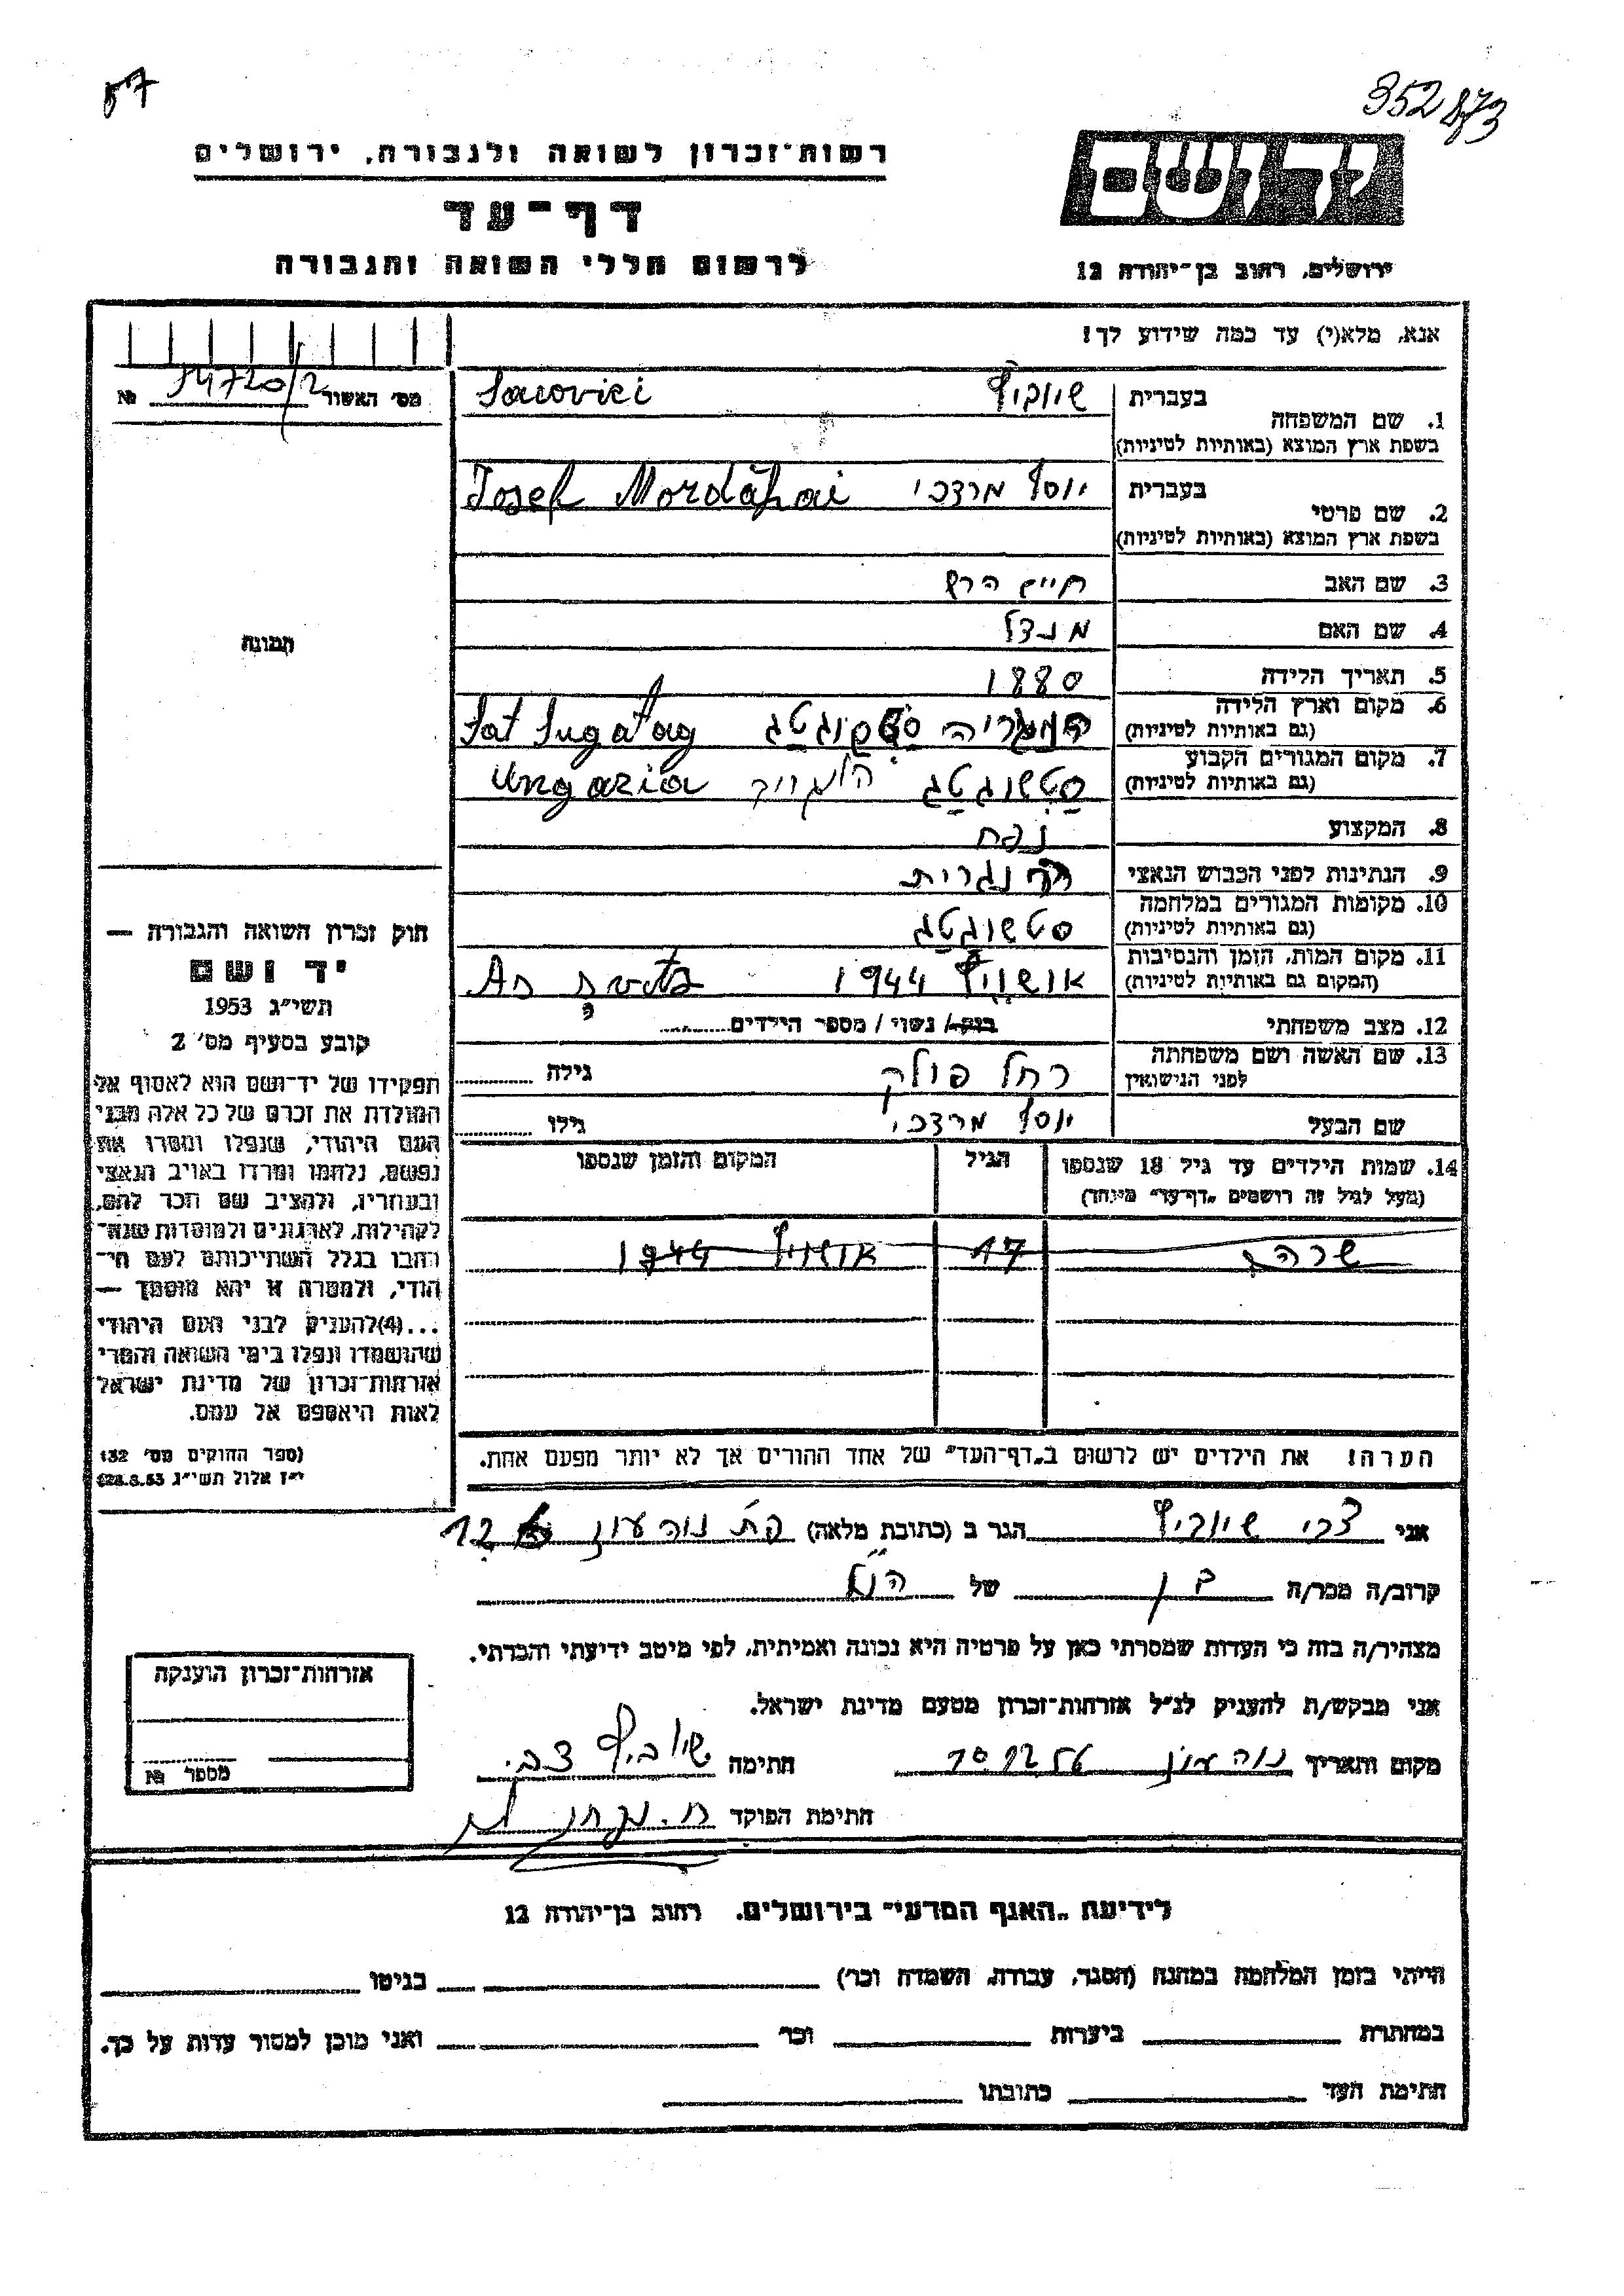 352873
רשות־זכרון לשואה ולגבורה, ירושלים
יד ושם
דף־עד
לרשום חללי השואה והגבורה
ירושלים, רחוב בן־יהודה 12
אנא, מלא(י) עד כמה שידוע לך!
מס׳ האשור 14720/2 №
1. שם המשפחה
בעברית
בשפת ארץ המוצא (באותיות לטיניות)
שיוביץ
2. שם פרטי
בעברית
בשפת ארץ המוצא (באותיות לטיניות)
יוסף מרדכי Iosef Mordähai
3. שם האב חיים הרש
4. שם האם מנדל
5. תאריך הלידה 1880
6. מקום וארץ הלידה
(גם באותיות לטיניות)
Sat Sugatag
7. מקום המגורים הקבוע
(גם באותיות לטיניות)
סטשוגטג Ungaria
8. המקצוע נפח
9. הנתינות לפני הכבוש הנאצי הונגרית
10. מקומות המגורים במלחמה
(גם באותיות לטיניות)
סטשוגטג
11. מקום המות, הזמן והנסיבות
(המקום גם באותיות לטיניות)
אושוויץ 1944
12. מצב משפחתי רווק / נשוי / מספר הילדים
13. שם האשה ושם משפחתה
לפני הנישואין
רחל פולק גילה
שם הבעל יוסף מרדכי גילו
14. שמות הילדים עד גיל 18 שנספו
(מעל לגיל זה רושמים „דף־עד״ מיוחד)
הגיל
המקום והזמן שנספו
שרה 17 אושויץ 1944
הערה! את הילדים יש לרשום ב„דף־העד״ של אחד ההורים אך לא יותר מפעם אחת.
תמונה
חוק זכרון השואה והגבורה —
יד ושם
תשי״ג 1953
קובע בסעיף מס׳ 2
תפקידו של יד־ושם הוא לאסוף אל
המולדת את זכרם של כל אלה מבני
העם היהודי, שנפלו ומסרו את
נפשם, נלחמו ומרדו באויב הנאצי
ובעוזריו, ולהציב שם וזכר להם,
לקהילות, לארגונים ולמוסדות שנח־
רבו בגלל השתייכותם לעם הי־
הודי, ולמטרה זו יהא מוסמך —
...(4)להעניק לבני העם היהודי
שהושמדו ונפלו בימי השואה והמרי
אזרחות־זכרון של מדינת ישראל
לאות היאספם אל עמם.
(ספר החוקים מס׳ 132
י״ז אלול תשי״ג 28.8.53)
אני צבי שיוביץ הגר ב (כתובת מלאה) 12
קרוב/ה מכר/ה בן של הנ״ל
מצהיר/ה בזה כי העדות שמסרתי כאן על פרטיה היא נכונה ואמיתית, לפי מיטב ידיעתי והכרתי.
אני מבקש/ת להעניק לנ״ל אזרחות־זכרון מטעם מדינת ישראל.
מקום ותאריך 10.12.56 חתימה שיוביץ צבי
חתימת הפוקד
אזרחות־זכרון הוענקה
מספר №
לידיעת „האגף המדעי״ בירושלים, רחוב בן־יהודה 12
הייתי בזמן המלחמה במחנה (הסגר, עבודה, השמדה וכו׳) בגיטו
במחתרת ביערות וכו׳ ואני מוכן למסור עדות על כך.
חתימת העד כתובתו